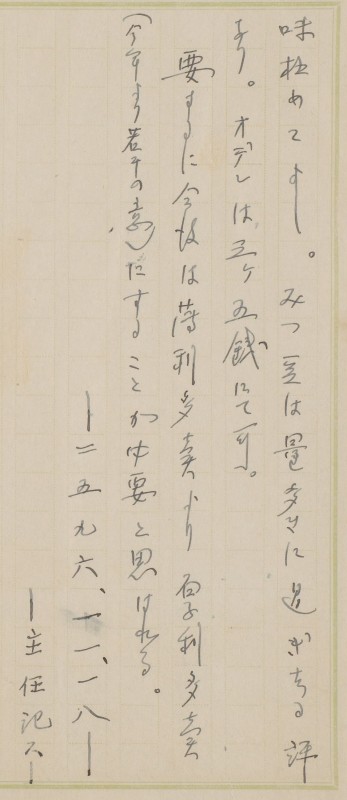 味極めてよし。みつ豆は量多きに過ぎたる評
あり。オデンは三ケ五銭にて可。
要するに今後は薄利多売より厚利多売
(今年より若干の意)だすることが必要と思はれる。
―二五九六、一一、一八―
―主任記ス―